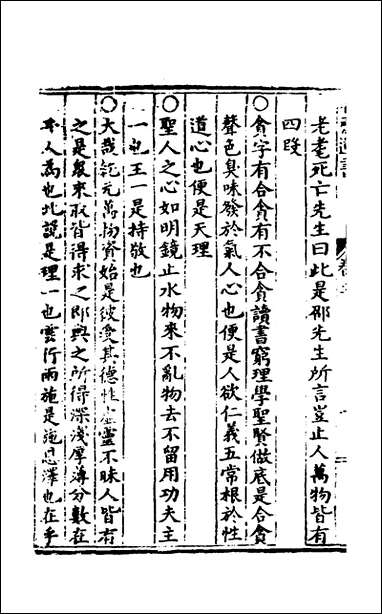 老耄死亡先生曰此是邵先生所言豈止人萬物皆有
四段
○貪字有合貪有不合貪讀書窮理學聖賢做底是合貪
聲色臭味發於氣人心也便是人欲仁義五常根於性
道心也便是天理
○聖人之心如明鏡止水物來不亂物去不留用功夫主
一也主一是持敬也
○大哉乾元萬物資始是彼受其德性虛靈不昧人皆有
之是發來取皆得求之即與之所得深淺厚薄分數在
乎人為也此說是理一也雲行雨施是施恩澤也在乎